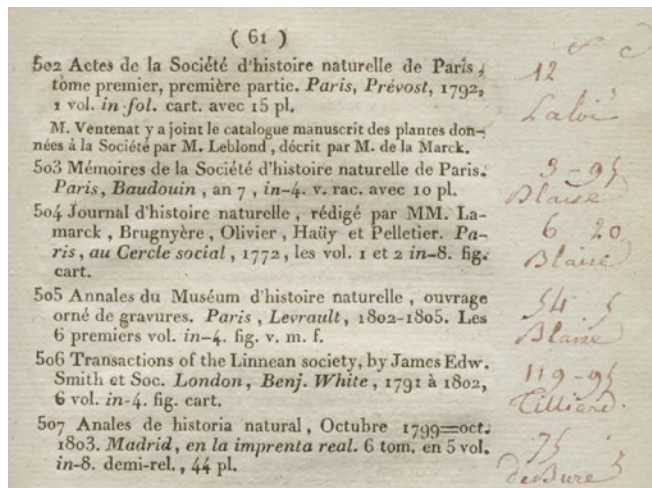 ( 61 )
502 Actes de la Société d'histoire naturelle de Paris,
tome premier, première partie. Paris, Prévost, 1792,
1 vol. in-fol. cart. avec 15 pl.
12
M. Ventenat y a joint le catalogue manuscrit des plantes don-
nées à la Société par M. Leblond, décrit par M. de la Marck.
503 Mémoires de la Société d'histoire naturelle de Paris.
Paris, Baudouin, an 7, in-4. v. rac. avec 10 pl.
3-95
Blaise
504 Journal d'histoire naturelle, rédigé par MM. La-
marck, Brugnyère, Olivier, Haüy et Pelletier. Pa-
ris, au Cercle social, 1772, les vol. 1 et 2 in-8. fig.
cart.
6 20
Blaise
505 Annales du Muséum d'histoire naturelle, ouvrage
orné de gravures. Paris, Levrault, 1802-1805. Les
6 premiers vol. in-4. fig. v. m. f.
54 - 5
Blaise
506 Transactions of the Linnean society, by James Edw.
Smith et Soc. London, Benj. White, 1791 à 1802,
6 vol. in-4. fig. cart.
119-95
Tilliard.
507 Anales de historia natural, Octubre 1799=oct.
1803. Madrid, en la imprenta real. 6 tom. en 5 vol.
in-8. demi-rel., 44 pl.
75
deBure